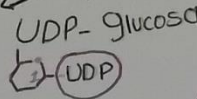 UDP- glucose
UDP